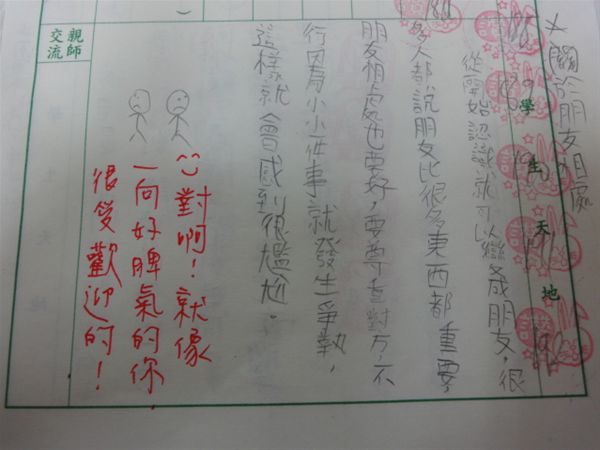 關於朋友相處
學生天地
從開始認識就可以變成朋友，很
多人都說朋友比很多東西都重要，
朋友相處也要好，要尊重對方，不
行因為小小一件事就發生爭執，
這樣就會感到很尷尬。
對啊！就像
一向好脾氣的你，
很受歡迎的！
親師
交流